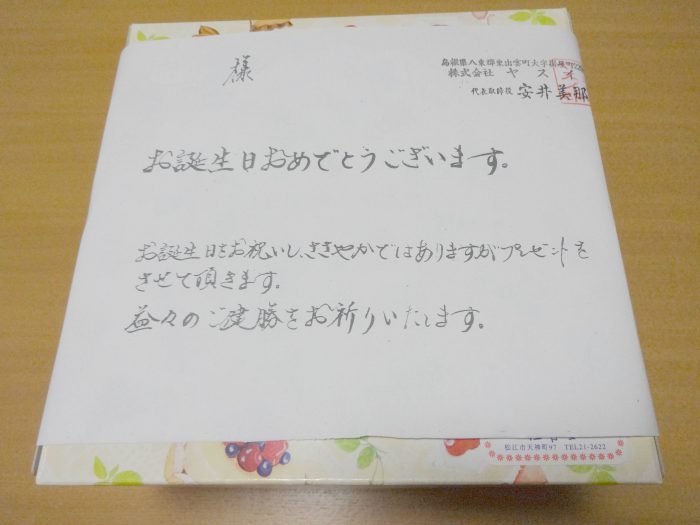 様
島根県八束郡東出雲町大字
株式会社 ヤスイ
代表取締役 安井美那
お誕生日おめでとうございます。
お誕生日をお祝いし、ささやかではありますがプレゼントを
させて頂きます。
益々のご健勝をお祈りいたします。
松江市天神町97 TEL21-2622